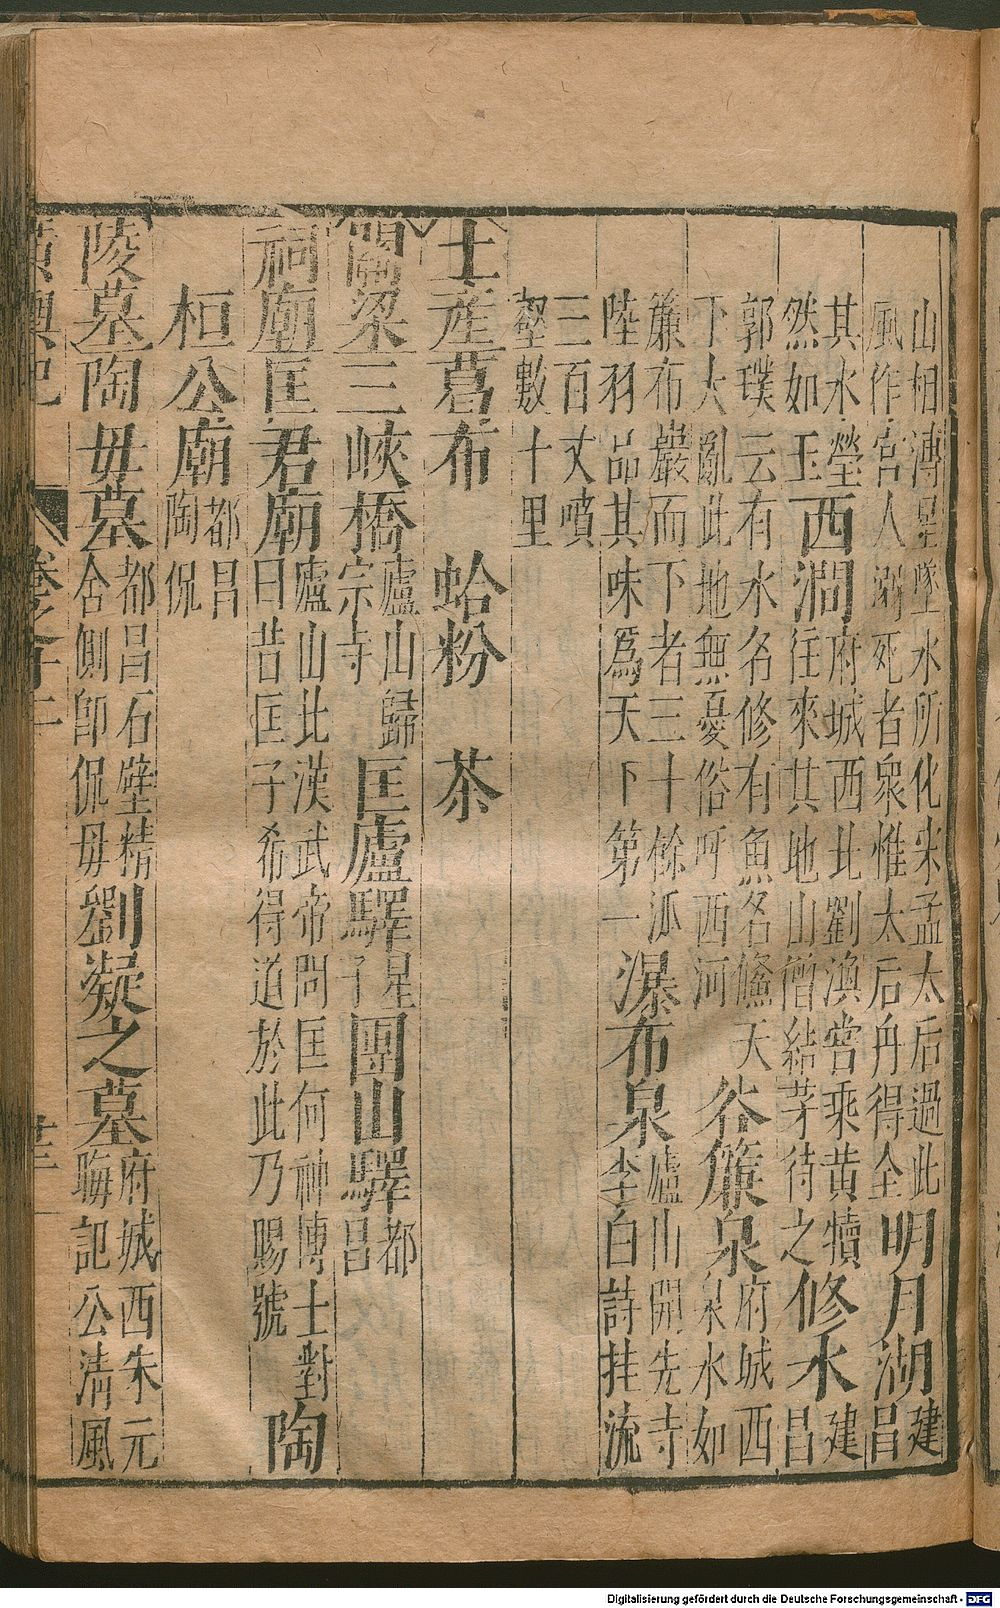 山相溥星墜水所化宋孟太后過此
風作宮人溺死者衆惟太后舟得全明月湖建昌
其水瑩然如玉西澗府城西北劉渙嘗乘黄犢往來其地山僧結茅待之修水建昌
郭璞云有水名修有魚名鯈天下大亂此地無憂俗呼西河谷簾泉府城西泉水如
簾布巖而下者三十餘派陸羽品其味爲天下第一瀑布泉廬山開先寺李白詩挂流
三百丈噴壑數十里
土産葛布 蛤粉 茶
關梁三峽橋廬山歸宗寺 匡廬驛星子團山驛都昌
祠廟匡君廟廬山北漢武帝問匡何神博士對曰昔匡子希得道於此乃賜號陶
桓公廟都昌陶侃
陵墓陶毋墓都昌石壁精舍側卽侃毋劉凝之墓府城西朱元晦記公清風
廣輿記 卷之十二
Digitalisierung gefördert durch die Deutsche Forschungsgemeinschaft - DFG